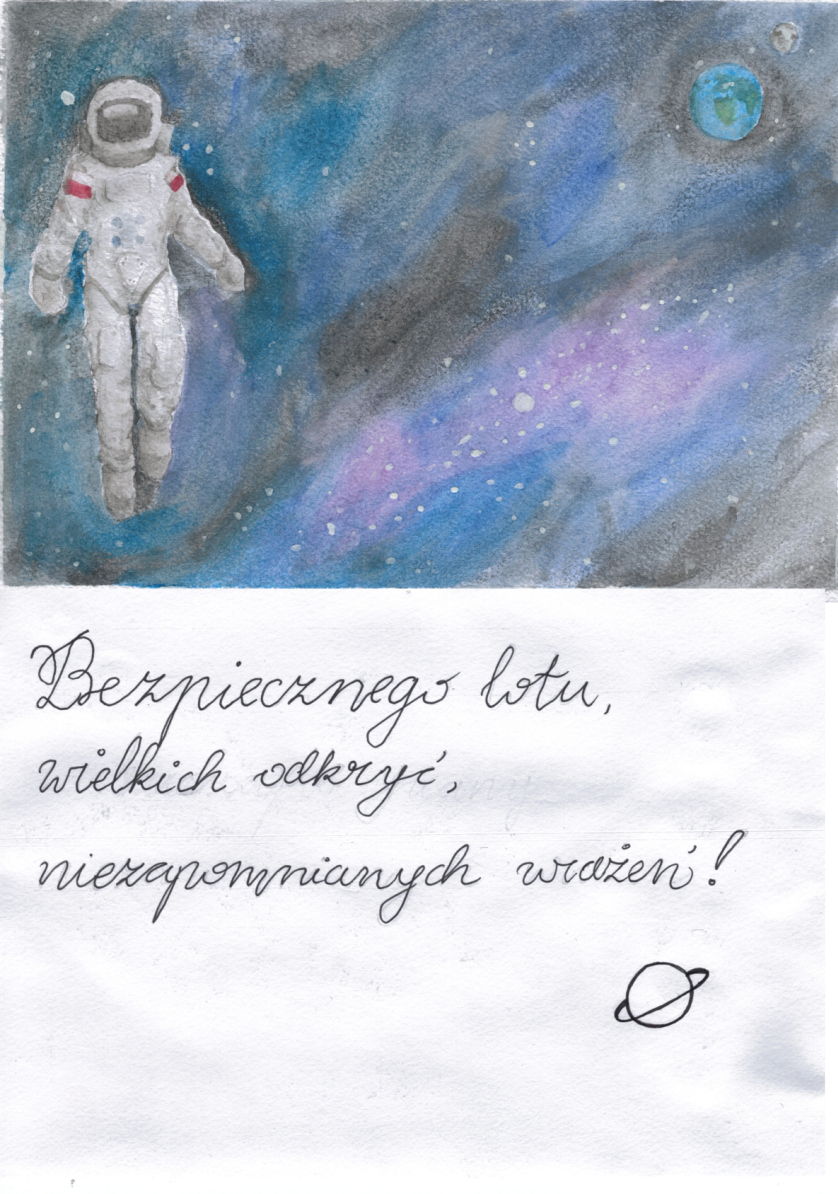 Bezpiecznego lotu,
wielkich odkryć,
niezapomnianych wrażeń!